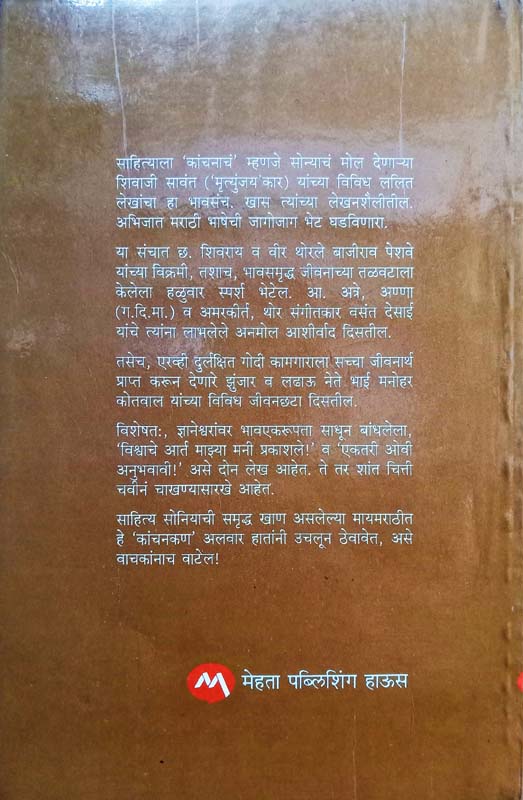 साहित्याला 'कांचनाचं' म्हणजे सोन्याचं मोल देणाऱ्या
शिवाजी सावंत ('मृत्युंजय'कार) यांच्या विविध ललित
लेखांचा हा भावसंच. खास त्यांच्या लेखनशैलीतील.
अभिजात मराठी भाषेची जागोजाग भेट घडविणारा.
या संचात छ. शिवराय व वीर थोरले बाजीराव पेशवे
यांच्या विक्रमी, तशाच, भावसमृद्ध जीवनाच्या तळवटाला
केलेला हळुवार स्पर्श भेटेल. आ. अत्रे, अण्णा
(ग.दि.मा.) व अमरकीर्त, थोर संगीतकार वसंत देसाई
यांचे त्यांना लाभलेले अनमोल आशीर्वाद दिसतील.
तसेच, एरव्ही दुर्लक्षित गोदी कामगाराला सच्चा जीवनार्थ
प्राप्त करून देणारे झुंजार व लढाऊ नेते भाई मनोहर
कोतवाल यांच्या विविध जीवनछटा दिसतील.
विशेषतः, ज्ञानेश्वरांवर भावएकरूपता साधून बांधलेला,
'विश्वाचे आर्त माझ्या मनी प्रकाशले!' व 'एकतरी ओवी
अनुभवावी!' असे दोन लेख आहेत. ते तर शांत चित्ती
चवीनं चाखण्यासारखे आहेत.
साहित्य सोनियाची समृद्ध खाण असलेल्या मायमराठीत
हे 'कांचनकण' अलवार हातांनी उचलून ठेवावेत, असे
वाचकांनाच वाटेल!
मेहता पब्लिशिंग हाऊस